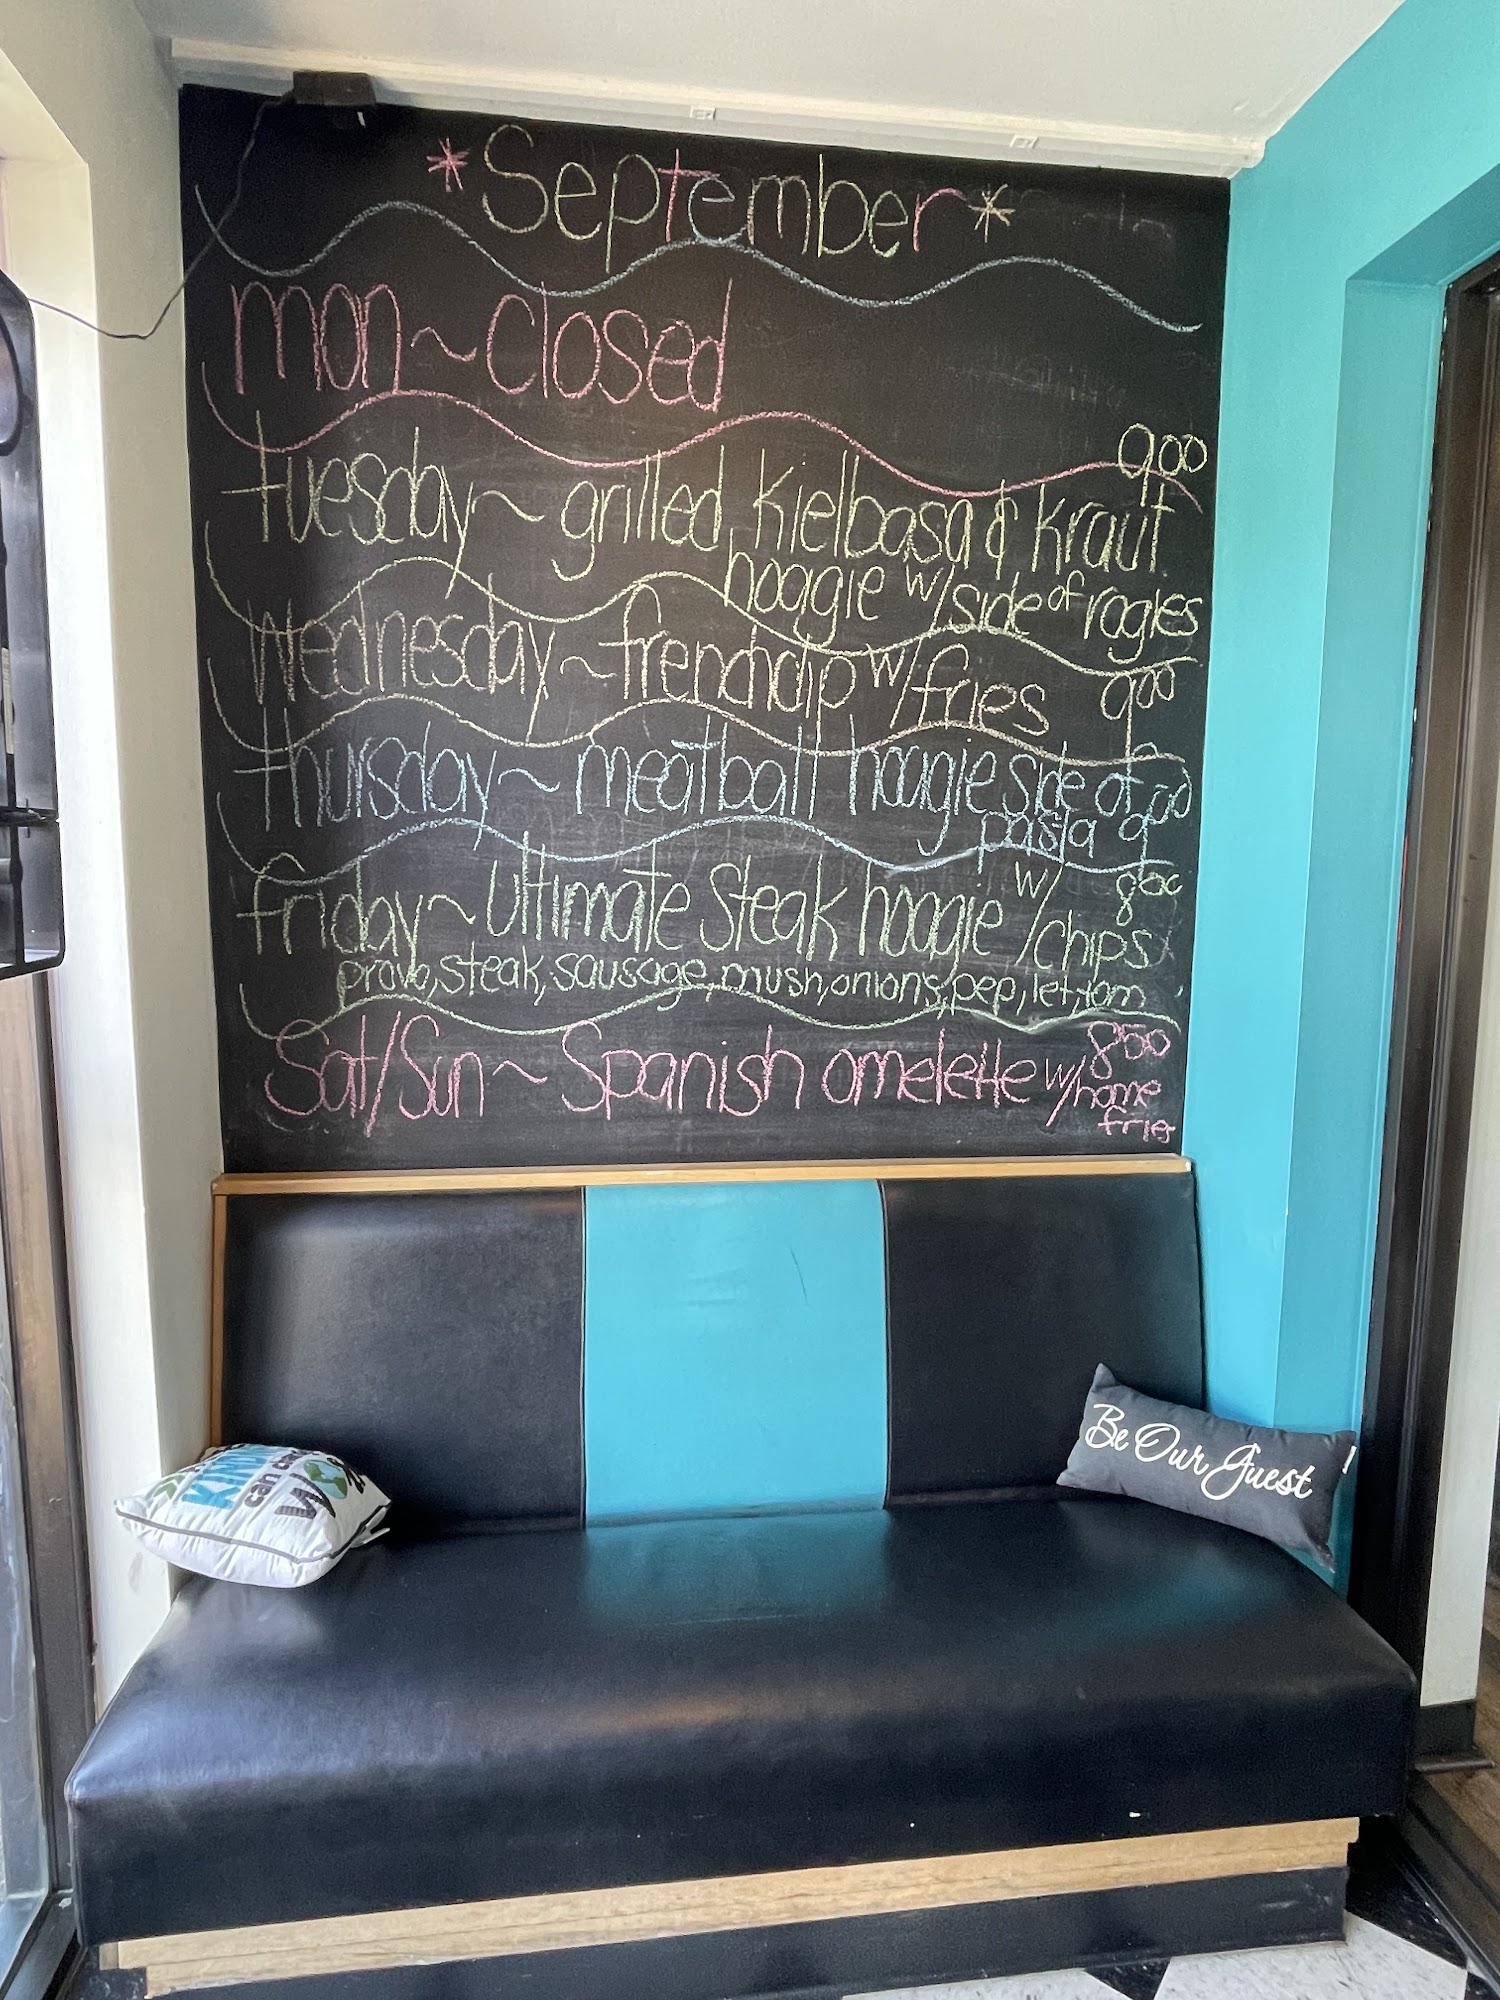 *September*
mon~closed
9.00
tuesday~grilled Kielbasa & Kraut
hoagie w/side of rogies
wednesday~frenchdip w/fries 9.00
thursday~meatball hoagie side of
pasta 9.00
friday~ultimate Steak hoagie w/chips 8.00
provo, steak, sausage, mush, onions, pep, let, tom
8.50
Sat/Sun~Spanish omelette w/home
fries
KIND
can
Be Our Guest